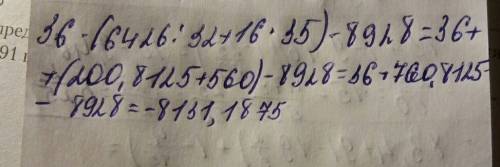 пред
91 г
36 -(6426:32+16·35)-8928=36+
+(200,8125+560)-8928=36+760,8125-
- 8928=-8131,1875